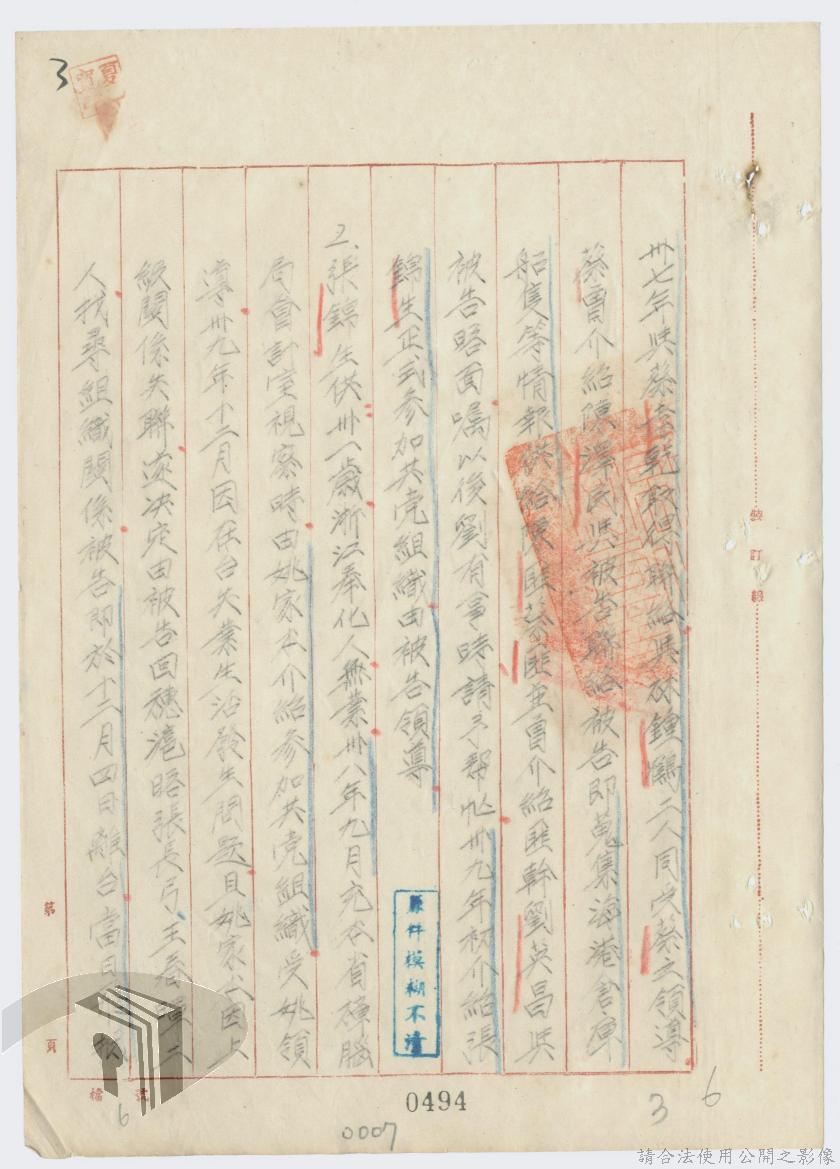 3
卅七年與蔡孝乾取得聯絡與林鍾鶴二人同受蔡之領導
蔡曾介紹陳澤民與被告聯絡被告即蒐集海港倉庫
船隻等情報供給陳匪蔡匪並曾介紹匪幹劉英昌與
被告晤面囑以後劉有事時請予幫忙卅九年初介紹張
錦生正式參加共党組織由被告領導
2、張錦生供卅一歲浙江奉化人無業卅八年九月充本省樟腦
局會計室視察時由姚家本介紹參加共党組織受姚領
導卅九年十二月因在台失業生活發生問題且姚家本因上
級關係失聯遂決定由被告回穗滬晤張長弓王春暉二
人找尋組織關係被告即於十二月四日離台當日
原件模糊不清
裝訂線
第 頁
檔號
6
0494
0007
3
6
請合法使用公開之影像